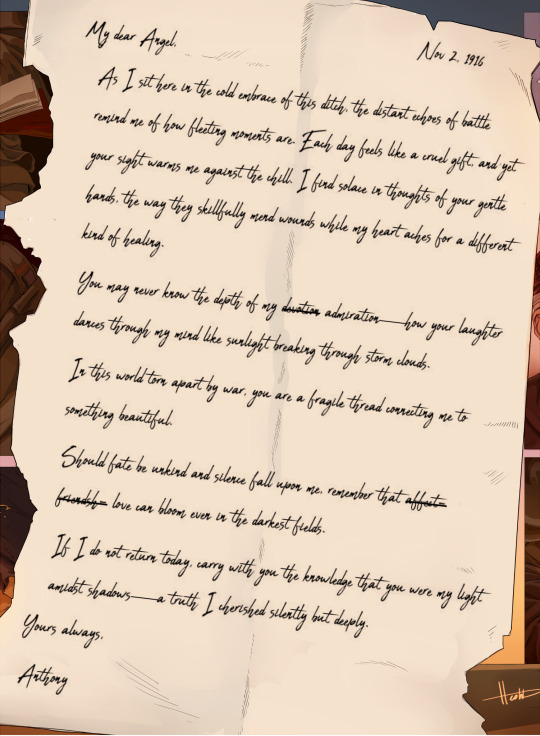 My dear Angel,
Nov 2, 1916
As I sit here in the cold embrace of this ditch, the distant echoes of battle
remind me of how fleeting moments are. Each day feels like a cruel gift, and yet
your sight warms me against the chill. I find solace in thoughts of your gentle
hands, the way they skillfully mend wounds while my heart aches for a different
kind of healing.
You may never know the depth of my devotion admiration—how your laughter
dances through my mind like sunlight breaking through storm clouds.
In this world torn apart by war, you are a fragile thread connecting me to
something beautiful.
Should fate be unkind and silence fall upon me, remember that affect-
friendsh- love can bloom even in the darkest fields.
If I do not return today, carry with you the knowledge that you were my light
amidst shadows—a truth I cherished silently but deeply.
Yours always,
Anthony